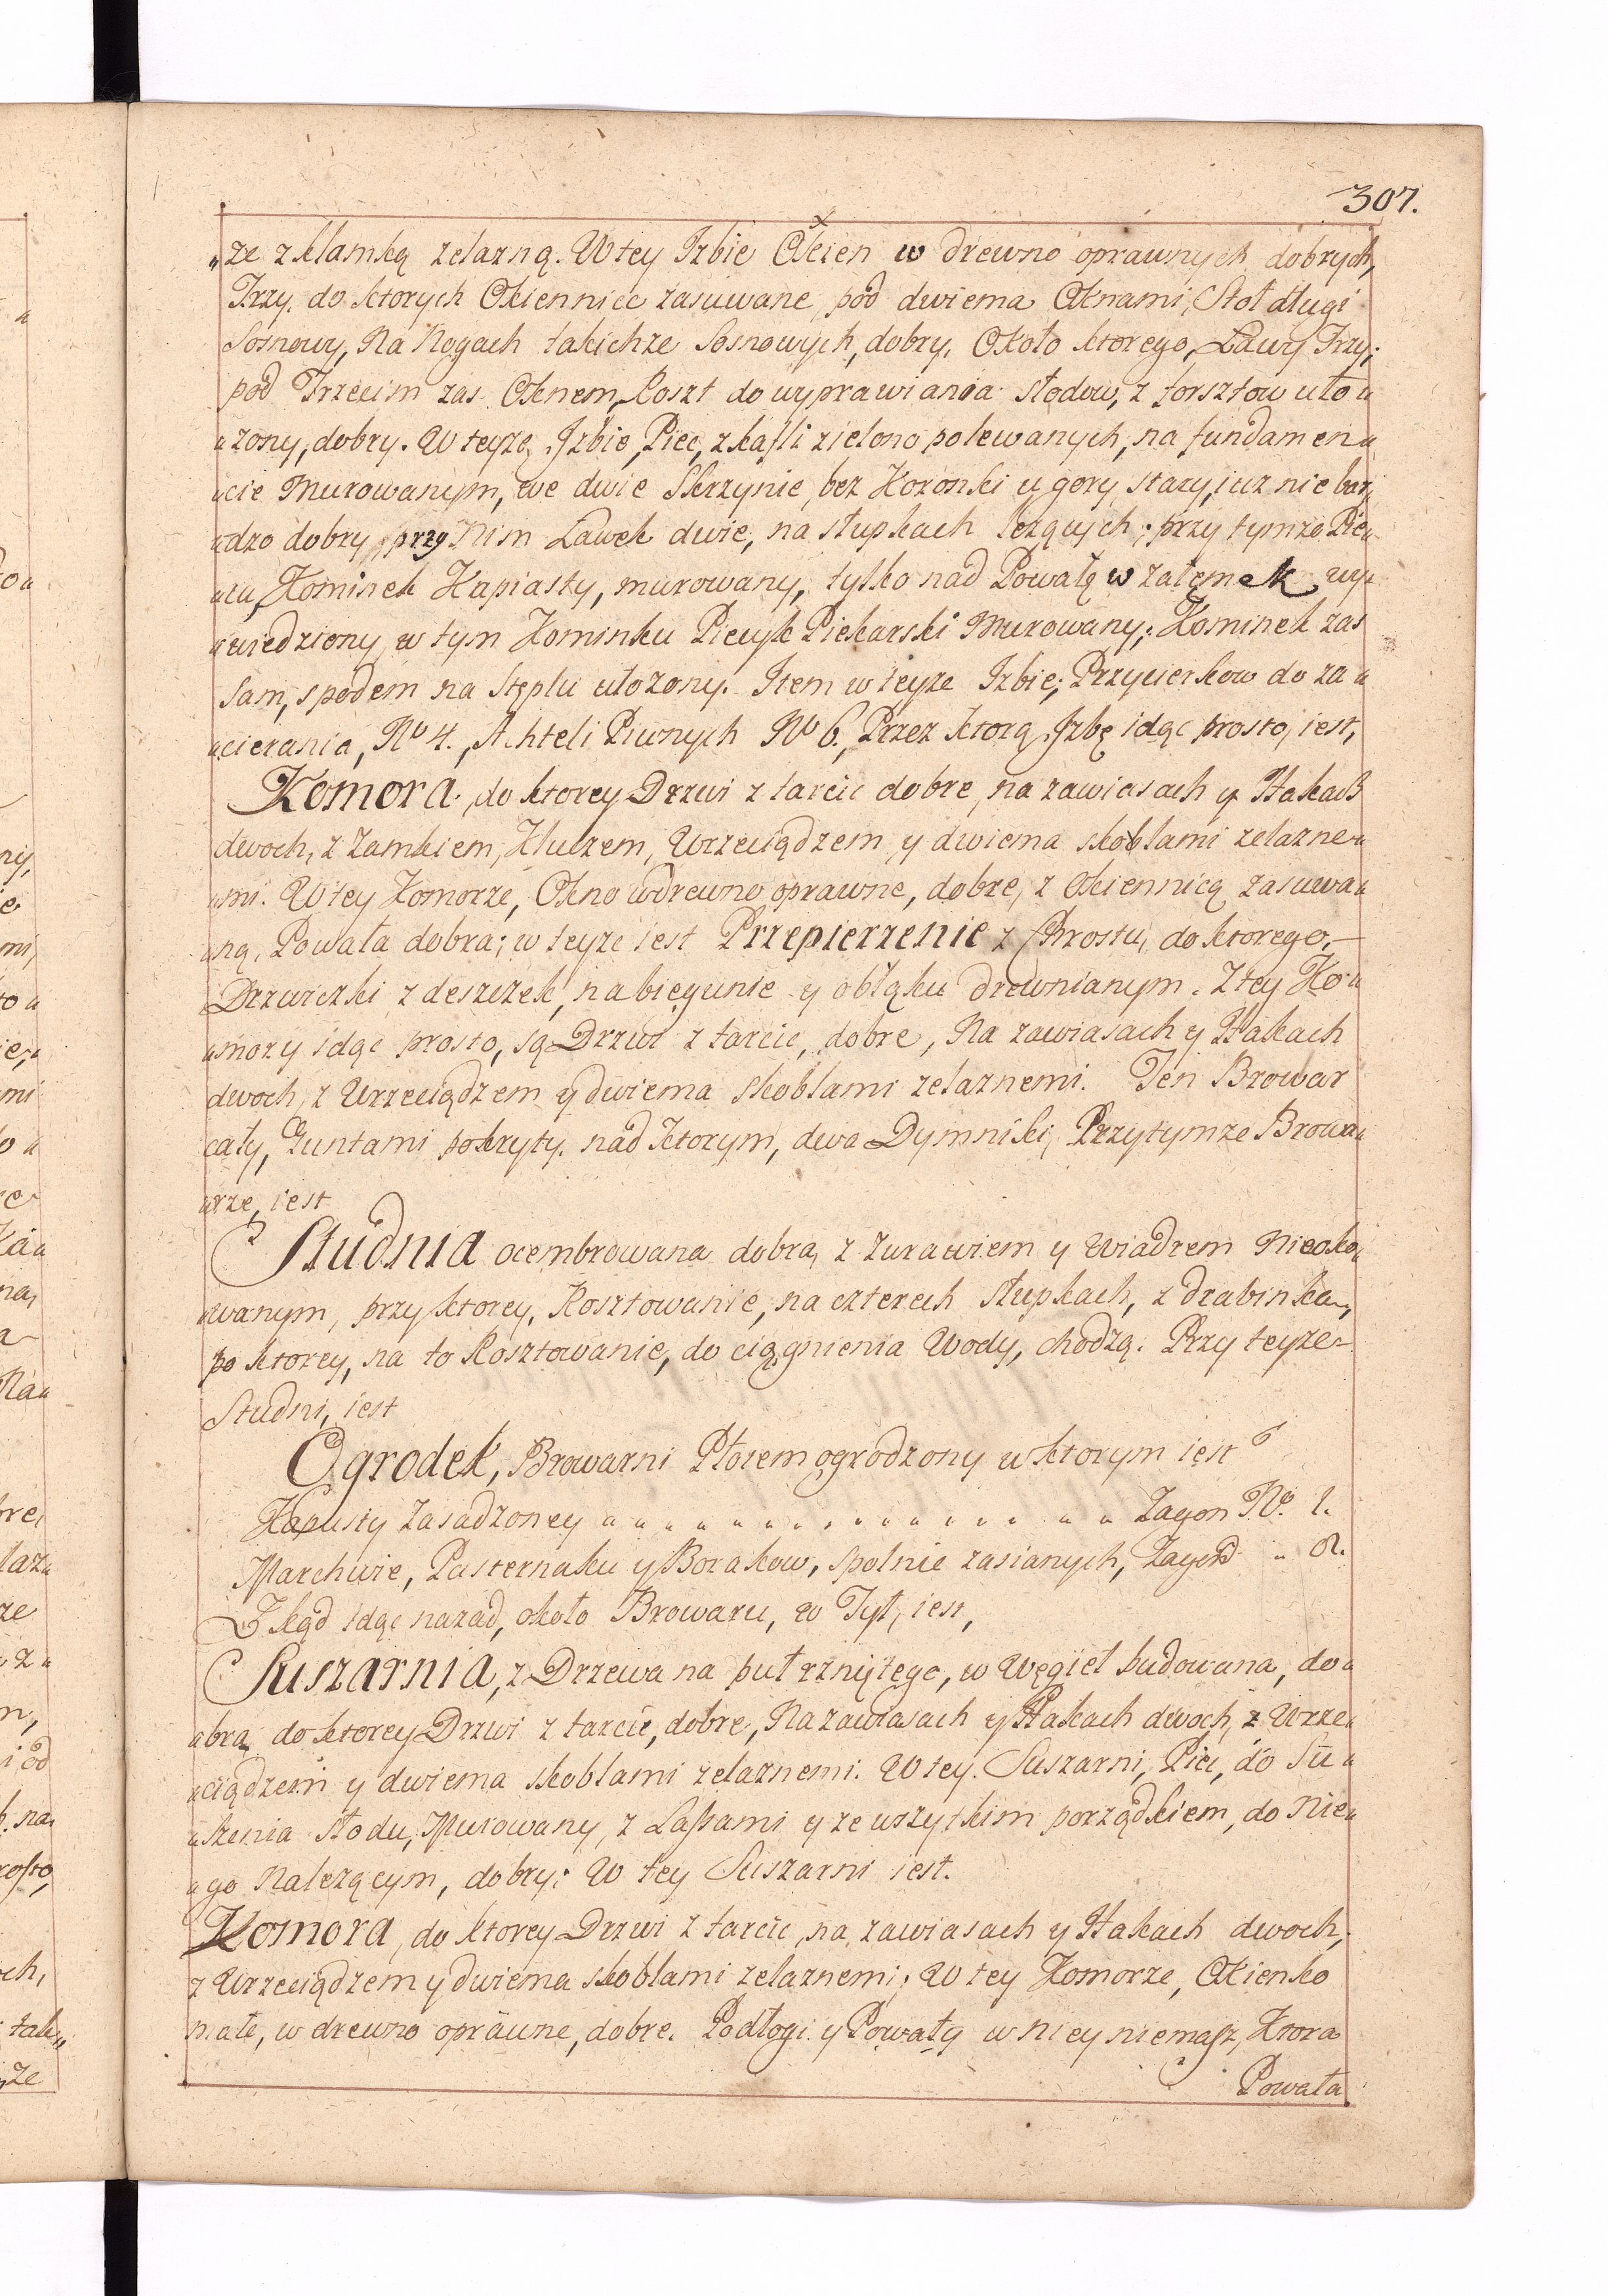 307.
„ze z klamką zelazną. W tey Izbie Okien w drewno oprawnych dobrych,
Trzy. do ktorych Okiennice zasuwane, pod dwiema Oknami, Stoł długi
Sosnowy, Na Nogach takichze Sosnowych, dobry. Około ktorego, Ławy Trzy;
pod Trzecim zas Oknem, Roszt do wyprawiania słodow, z forsztow uło„
„zony, dobry. W teyze Izbie, Piec, z kafli zielono polewanych, na fundamen„
„cie Murowanym, we dwie Skrzynie, bez Koronki u gory stary, iuz nie bar„
„dzo dobry, przy Nim Ławek dwie, na słupkach lezących; przy tymze Pie„
„cu, Kominek Kapiasty, murowany, tylko nad Powałę w załęmek wy„
„wiedziony, w tym Kominku Piecyk Piekarski Murowany; Kominek zas
sam, spodem na Stęplu ułozony. Item w teyze Izbie; Przycierkow do za„
„cierania, No 4., Achteli Piwnych No 6., Przez ktorą Izbę idąc prosto, iest,
Komora, do ktorey Drzwi z tarcic dobre, na zawiasach y Hakach
dwoch, z Zamkiem, Kluczem, Wrzeciądzem y dwiema skoblami zelazne„
„mi. W tey Komorze, Okno w drewno oprawne, dobre, z Okiennicą zasuwa„
„ną, Powała dobra; w teyze iest Przepierzenie z Chrostu, do ktorego,
Drzwiczki z deszczek, na biegunie y obłąku drewnianym. Z tey Ko„
„mory idąc prosto, są Drzwi z tarcic, dobre, Na zawiasach y Hakach
dwoch, z Wrzeciądzem y dwiema skoblami zelaznemi. Ten Browar
cały, Guntami pokryty. nad ktorym, dwa Dymniki, Przytymze Browa„
„rze, iest
Studnia ocembrowana dobra, z Zurawiem y Wiadrem Nieoko„
„wanym, przy ktorey, Rosztowanie, na czterech słupkach, z drabinką,
po ktorey, na to Rosztowanie, do ciągnienia Wody, chodzą. Przy teyze
Studni, iest
Ogrodek, Browarni Płotem ogrodzony w ktorym iest
Kapusty zasadzoney „ „ „ „ „ „ „ „ „ „ „ „ „ „ „ „ Zagon No. 1.
Marchwie, Pasternaku y Borakow, spolnie zasianych, Zagon „ 2.
Z kąd idąc nazad, około Browaru, w Tył, iest,
Suszarnia, z Drzewa na puł rzniętego, w Węgieł budowana, do„
„bra, do ktorey Drzwi z tarcic, dobre, Na zawiasach y Hakach dwoch, z Wrze„
„ciądzem y dwiema skoblami zelaznemi. W tey Suszarni, Piec, do Su„
„szenia słodu, Murowany, z Lassami y ze wszytkim porządkiem, do Nie„
„go Nalezącym, dobry; W tey Suszarni iest.
Komora, do ktorey Drzwi z tarcic, na zawiasach y Hakach dwoch,
z Wrzeciądzem y dwiema skoblami zelaznemi; W tey Komorze, Okienko
małe, w drewno oprawne, dobre. Podłogi y Powały w niey niemasz, Ktora
Powała